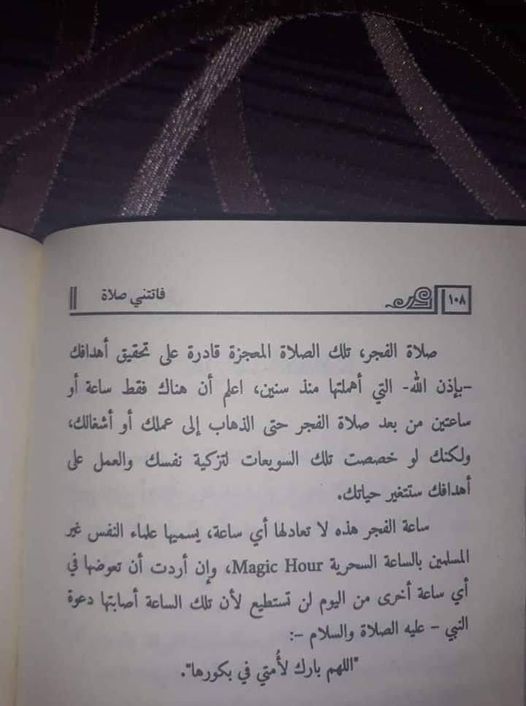 ١٠٨
فاتتني صلاة
صلاة الفجر، تلك الصلاة المعجزة قادرة على تحقيق أهدافك
-بإذن الله- التي أهملتها منذ سنين، اعلم أن هناك فقط ساعة أو
ساعتين من بعد صلاة الفجر حتى الذهاب إلى عملك أو أشغالك،
ولكنك لو خصصت تلك السويعات لتزكية نفسك والعمل على
أهدافك ستتغير حياتك.
ساعة الفجر هذه لا تعادلها أي ساعة، يسميها علماء النفس غير
المسلمين بالساعة السحرية Magic Hour، وإن أردت أن تعوضها في
أي ساعة أخرى من اليوم لن تستطيع لأن تلك الساعة أصابتها دعوة
النبي - عليه الصلاة والسلام -:
"اللهم بارك لأُمتي في بكورها".